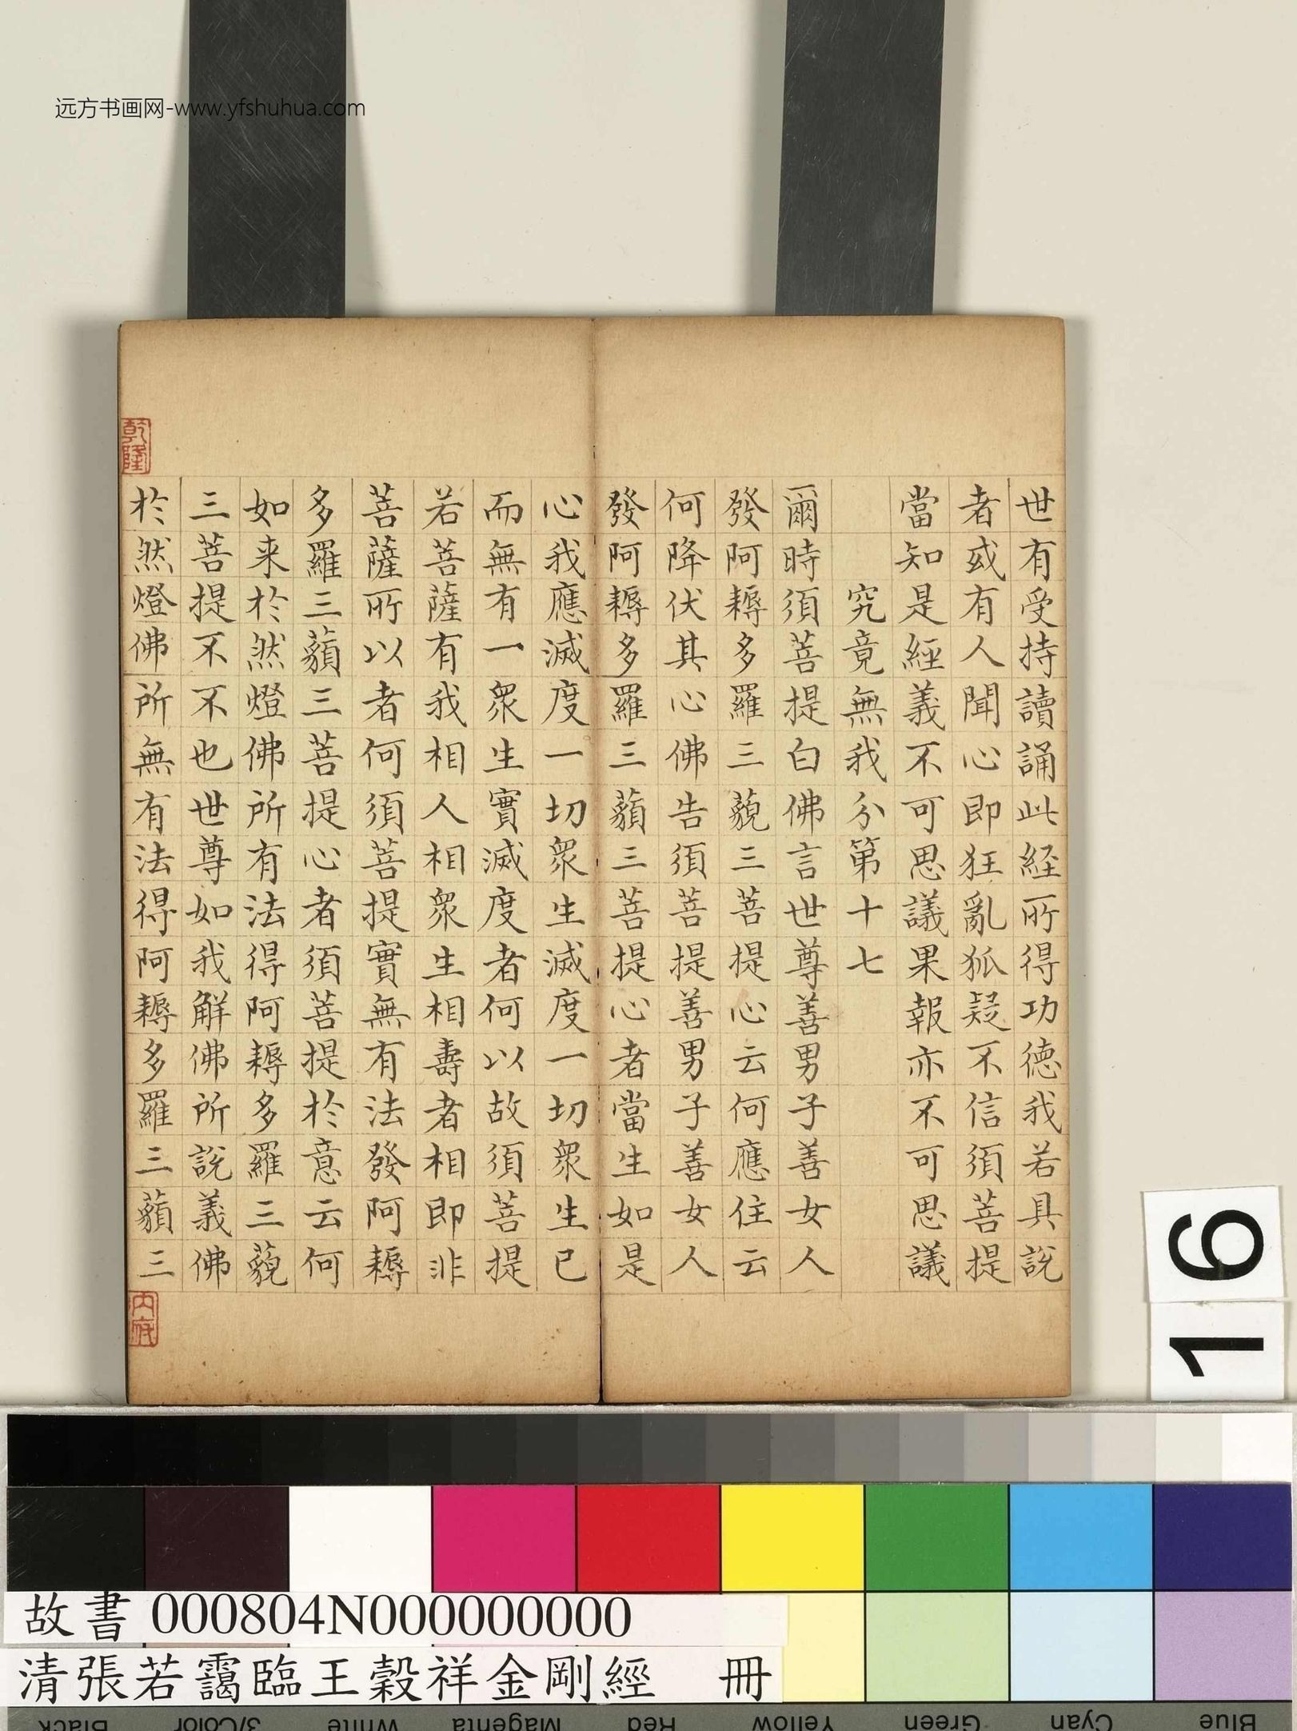 远方书画网-www.yfshuhua.com
世有受持讀誦此經所得功德我若具說
者或有人聞心即狂亂狐疑不信須菩提
當知是經義不可思議果報亦不可思議
究竟無我分第十七
爾時須菩提白佛言世尊善男子善女人
發阿耨多羅三藐三菩提心云何應住云
何降伏其心佛告須菩提善男子善女人
發阿耨多羅三藐三菩提心者當生如是
心我應滅度一切眾生滅度一切眾生已
而無有一眾生實滅度者何以故須菩提
若菩薩有我相人相眾生相壽者相即非
菩薩所以者何須菩提實無有法發阿耨
多羅三藐三菩提心者須菩提於意云何
如来於然燈佛所有法得阿耨多羅三藐
三菩提不不也世尊如我解佛所說義佛
於然燈佛所無有法得阿耨多羅三藐三
乾隆
内府
16
故書 000804N000000000
清張若靄臨王穀祥金剛經 冊
Black 3/Color White Magenta Red Yellow Green Cyan Blue